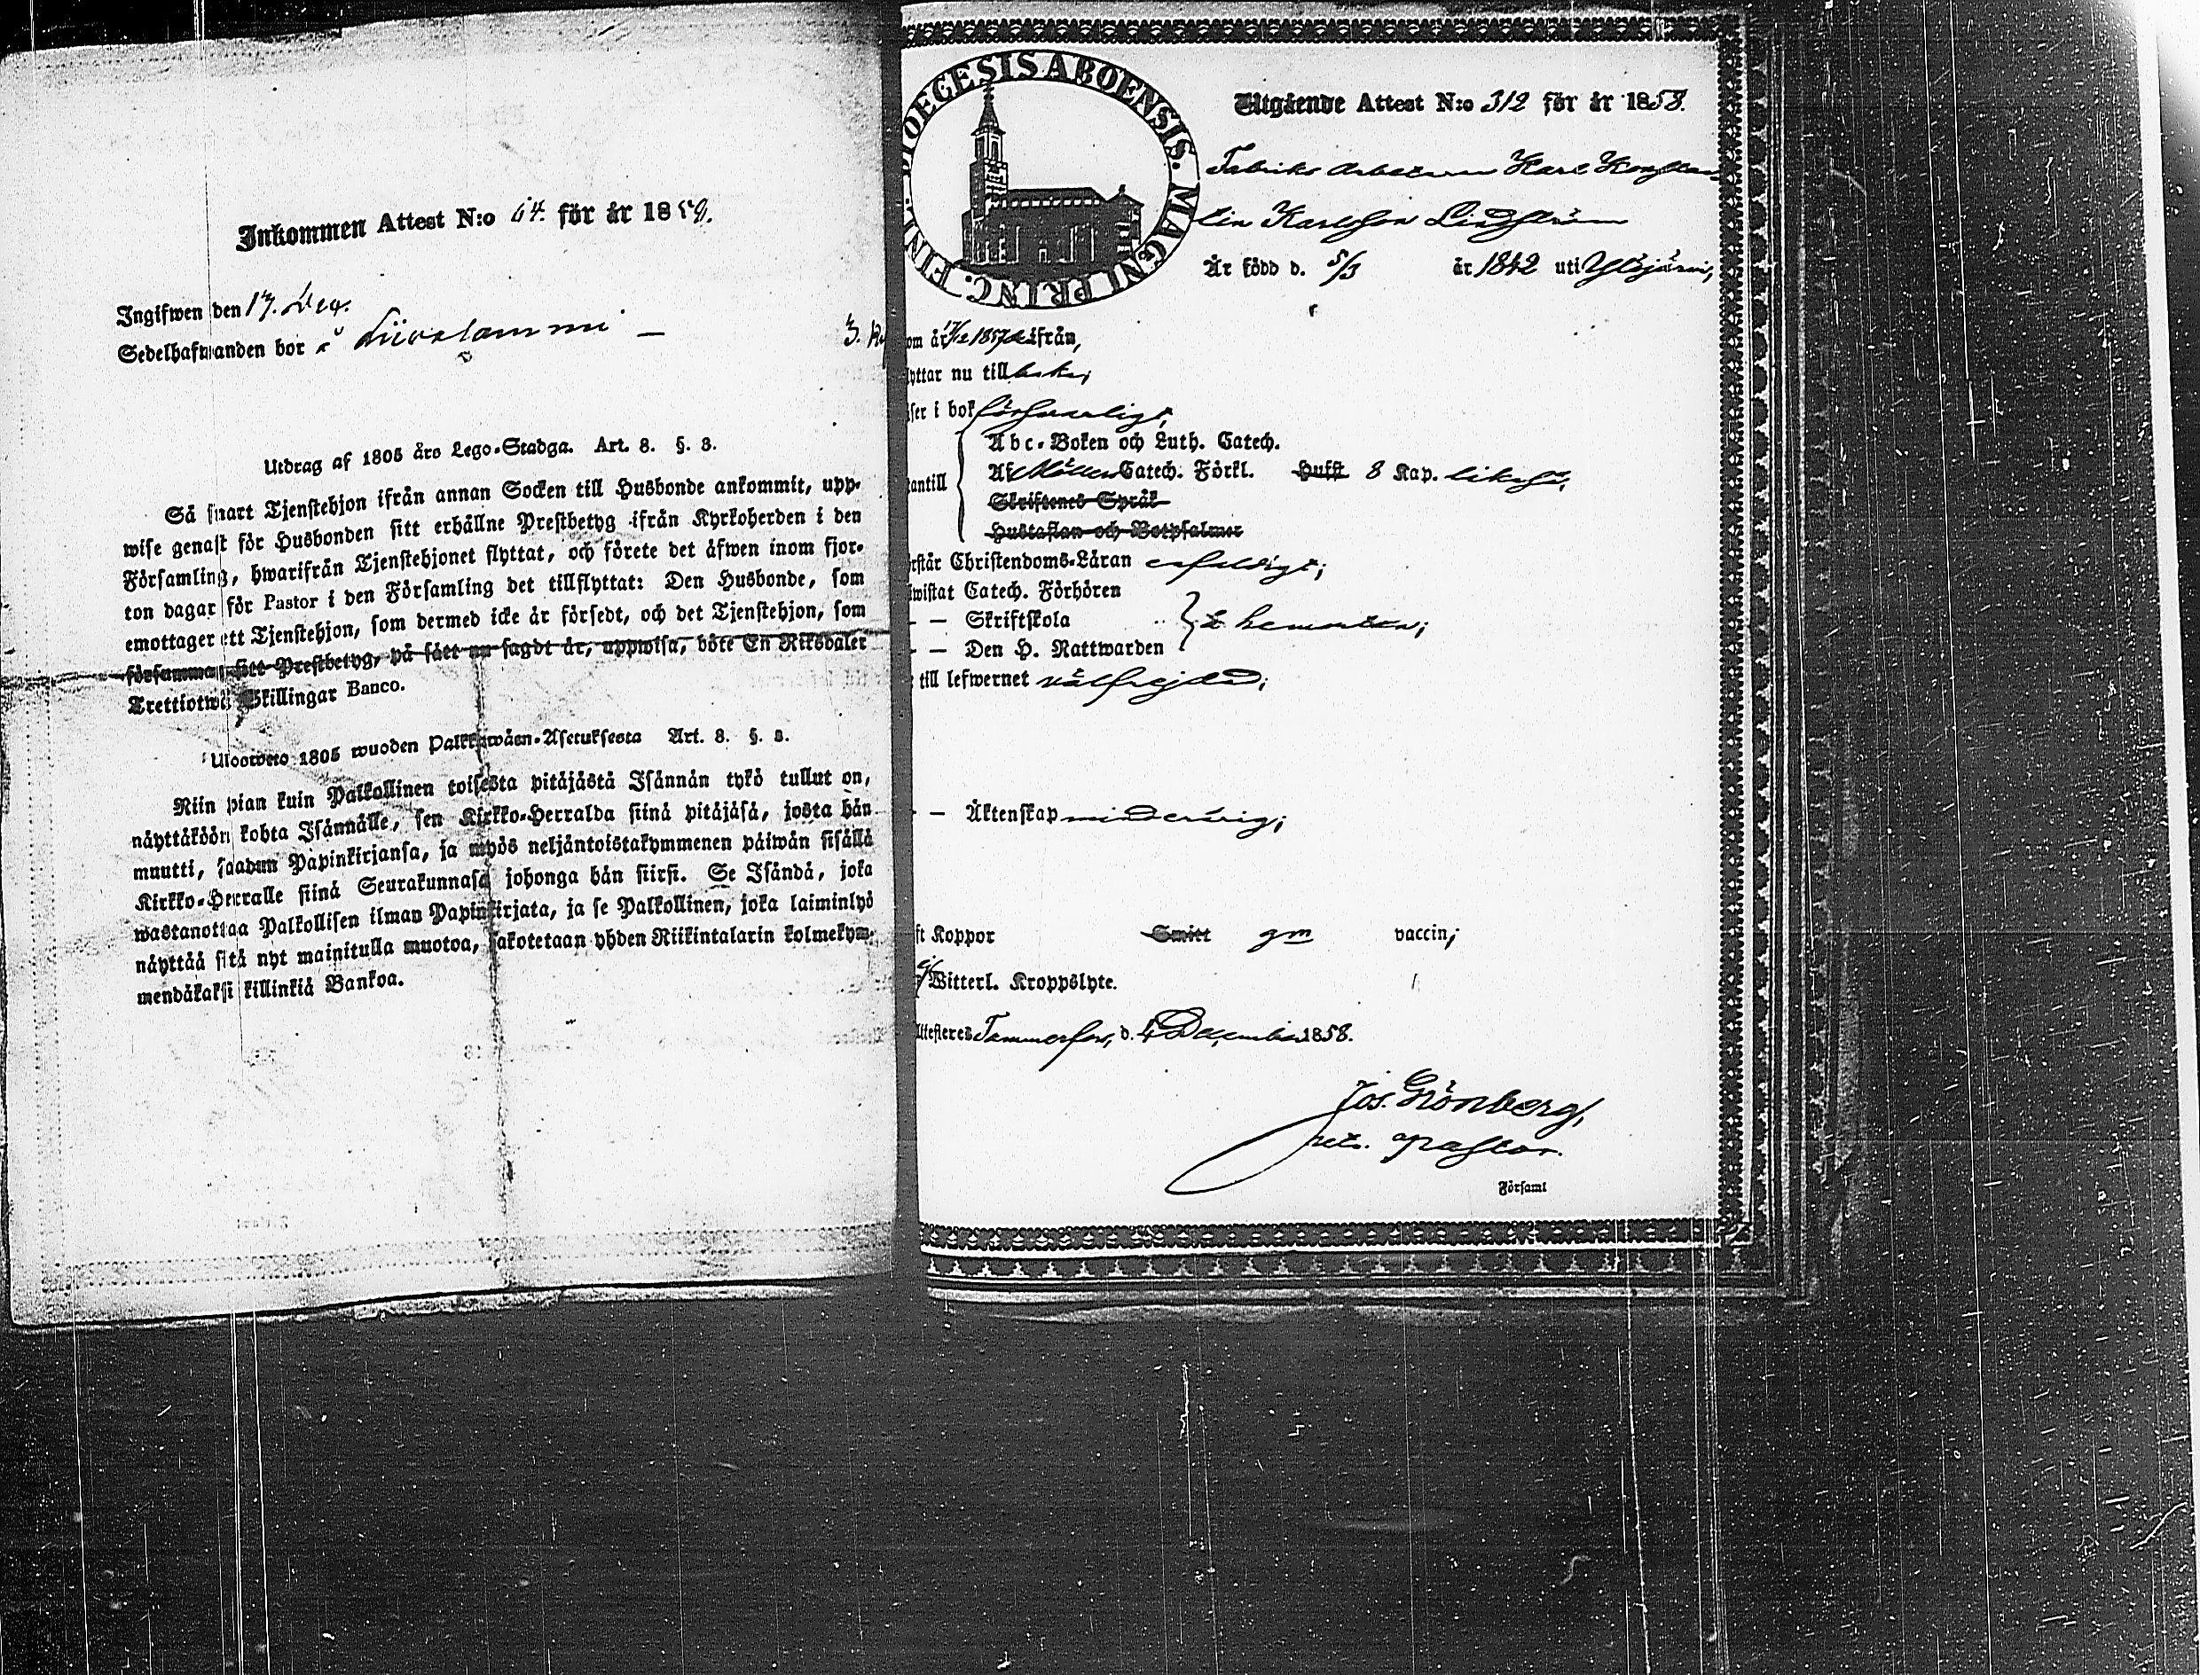 Inkommen Attest N:o 64. för år 1859.
Ingifwen den 17. Dec.
Sedelhafwanden bor å
Utdrag af 1805 års Lego-Stadga. Art. 8. §. 8.
Så snart Tjenstehjon ifrån annan Socken till Husbonde ankommit, upp-
wise genast för Husbonden sitt erhållne Prestbetyg ifrån Kyrkoherden i den
Församling, hwarifrån Tjenstehjonet flyttat, och förete det äfwen inom fjor-
ton dagar för Pastor i den Församling det tillflyttat: Den Husbonde, som
emottager ett Tjenstehjon, som dermed icke är försedt, och det Tjenstehjon, som
försummar sitt Prestbetyg, på sätt nu sagdt är, uppwisa, böte En Riksdaler
Trettiotwå Skillingar Banco.
Ulosweto 1805 wuoden Palkkawäen-Asetuksesta Art. 8. §. 8.
Niin pian kuin Palkollinen toisesta pitäjästä Isännän tykö tullut on,
näyttäköön kohta Isännälle, sen Kirkko-Herralda siinä pitäjäsä, josta hän
muutti, saadun Papinkirjansa, ja myös neljäntoistakymmenen päiwän sisällä
Kirkko-Herralle siinä Seurakunnasa johonga hän siirsi. Se Isändä, joka
wastanottaa Palkollisen ilman Papinkirjata, ja se Palkollinen, joka laiminlyö
näyttää sitä nyt mainitulla muotoa, sakotetaan yhden Riikintalarin kolmekym-
mendäkaksi killinkiä Bankoa.
DIOECESIS ABOENSIS. MAGNI PRINC. FINL.
Utgående Attest N:o 312 för år 1858.
Fabriks Arbetaren Karl
Karlsson Lindström
Är född d. 5/3 år 1842 uti Ylöjärvi,
om år 1857 ifrån,
lyttar nu tillbaka,
äser i bok försvarligt,
Abc-Boken och Luth. Catech.
antill Af Möllers Catech. Förkl. Husst 8 Kap. likaså,
Skriftenes Språk
Hustaflan och Botpsalmer
rstår Christendoms-Läran enfaldigt;
iwistat Catech. Förhören
— — Skriftskola hemorten;
— — Den H. Nattwarden
till lefwernet välfrejdad;
— Äktenskap minderårig;
ft Koppor Smitt gm vaccin;
ej Witterl. Kroppslyte.
Attesteres Tammerfors, d. 4 December 1858.
Jos. Grönberg,
Pastor.
Församl